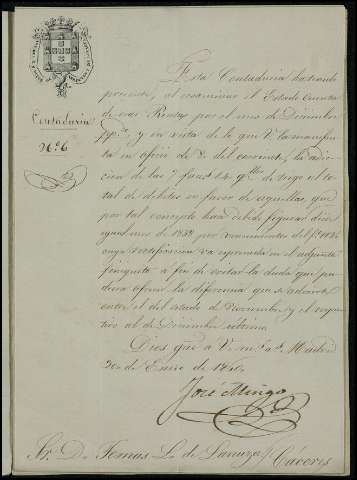 Contaduria
Nº 6
Esta Contaduria ha tenido
presente, al examinar el Estado Cuenta
de esas Rentas por el mes de Diciembre
y en vista de lo que V. la manifies
ta en oficio de 8 del corriente, la adic
cion de las 7 fans. de trigo el to
tal de debitos en favor de aquellas, que
por tal concepto han debido figurar
mes de 1839 por vencimientos
cuya rectificacion va espresada en el adjunto
finiquito a fin de evitar la duda que pu
diera ofrecer la diferencia que se advierte
entre el del estado de Noviembre y el respec
tivo al de Diciembre ultimo.
Dios gue. a V. ms. as. Madrid
20 de Enero de 1840.
José Mingo
Sr. D. Tomas L. de Lanuza, Cáceres